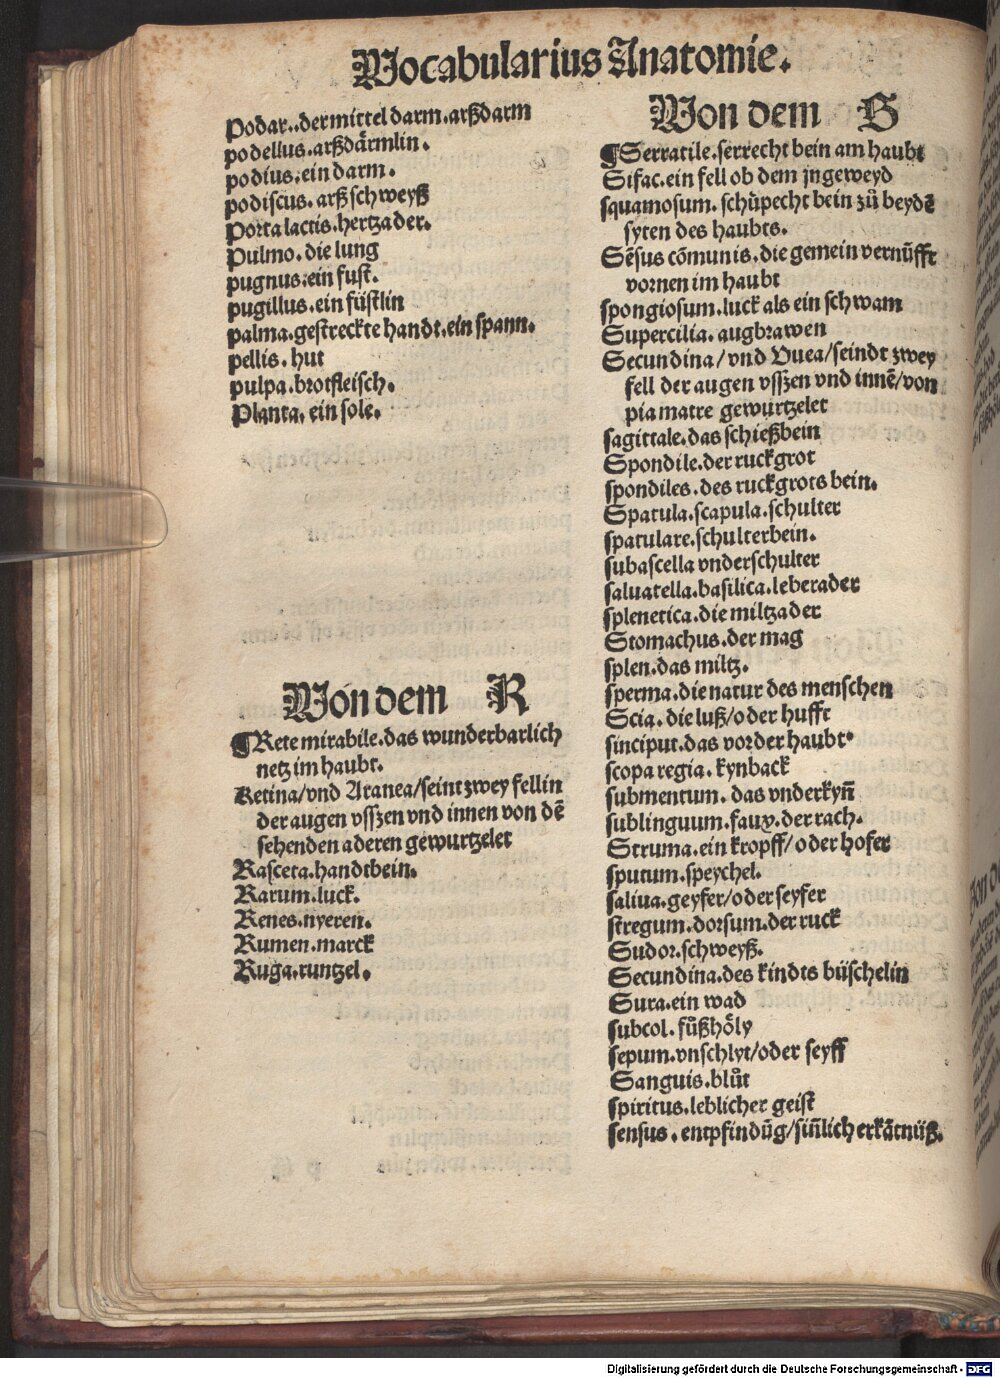 Vocabularius Anatomie.
Podar..der mittel darm.arßdarm
podellus.arßdärmlin.
podius.ein darm.
podiscus.arßschweyß
Porta lactis.hertzader.
Pulmo.die lung
pugnus.ein fust.
pugillus.ein füstlin
palma.gestreckte handt.ein spann.
pellis.hut
pulpa.brotfleisch.
Planta.ein sole.
Von dem R
¶Rete mirabile.das wunderbarlich
netz im haubt.
Retina/vnd Aranea/seint zwey fellin
der augen vsszen vnd innen von dē
sehenden aderen gewurtzelet
Rasceta.handtbein.
Rarum.luck.
Renes.nyeren.
Rumen.marck
Ruga.runtzel.
Von dem S
¶Serratile.serrecht bein am haubt
Sifac.ein fell ob dem jngeweyd
squamosum.schüpecht bein zů beydē
syten des haubts.
Sēsus cōmunis.die gemein vernüfft
vornen im haubt
spongiosum.luck als ein schwam
Supercilia.augbrawen
Secundina/vnd Vuea/seindt zwey
fell der augen vsszen vnd innē/von
pia matre gewurtzelet
sagittale.das schießbein
Spondile.der ruckgrot
spondiles.des ruckgrots bein.
Spatula.scapula.schulter
spatulare.schulterbein.
subascella vnderschulter
saluatella.basilica.leberader
splenetica.die miltzader
Stomachus.der mag
splen.das miltz.
sperma.die natur des menschen
Scia.die luß/oder hufft
sinciput.das vorder haubt.
scopa regia.kynback
submentum.das vnderkyn̄
sublinguum.faux.der rach.
Struma.ein kropff/oder hofer
sputum.speychel.
saliua.geyfer/oder seyfer
stregum.dorsum.der ruck
Sudor.schweyß.
Secundina.des kindts büschelin
Sura.ein wad
subcol.fůßhöly
sepum.vnschlyt/oder seyff
Sanguis.blůt
spiritus.leblicher geist
sensus.entpfindūg/sin̄lich erkātnüß.
Digitalisierung gefördert durch die Deutsche Forschungsgemeinschaft - DFG